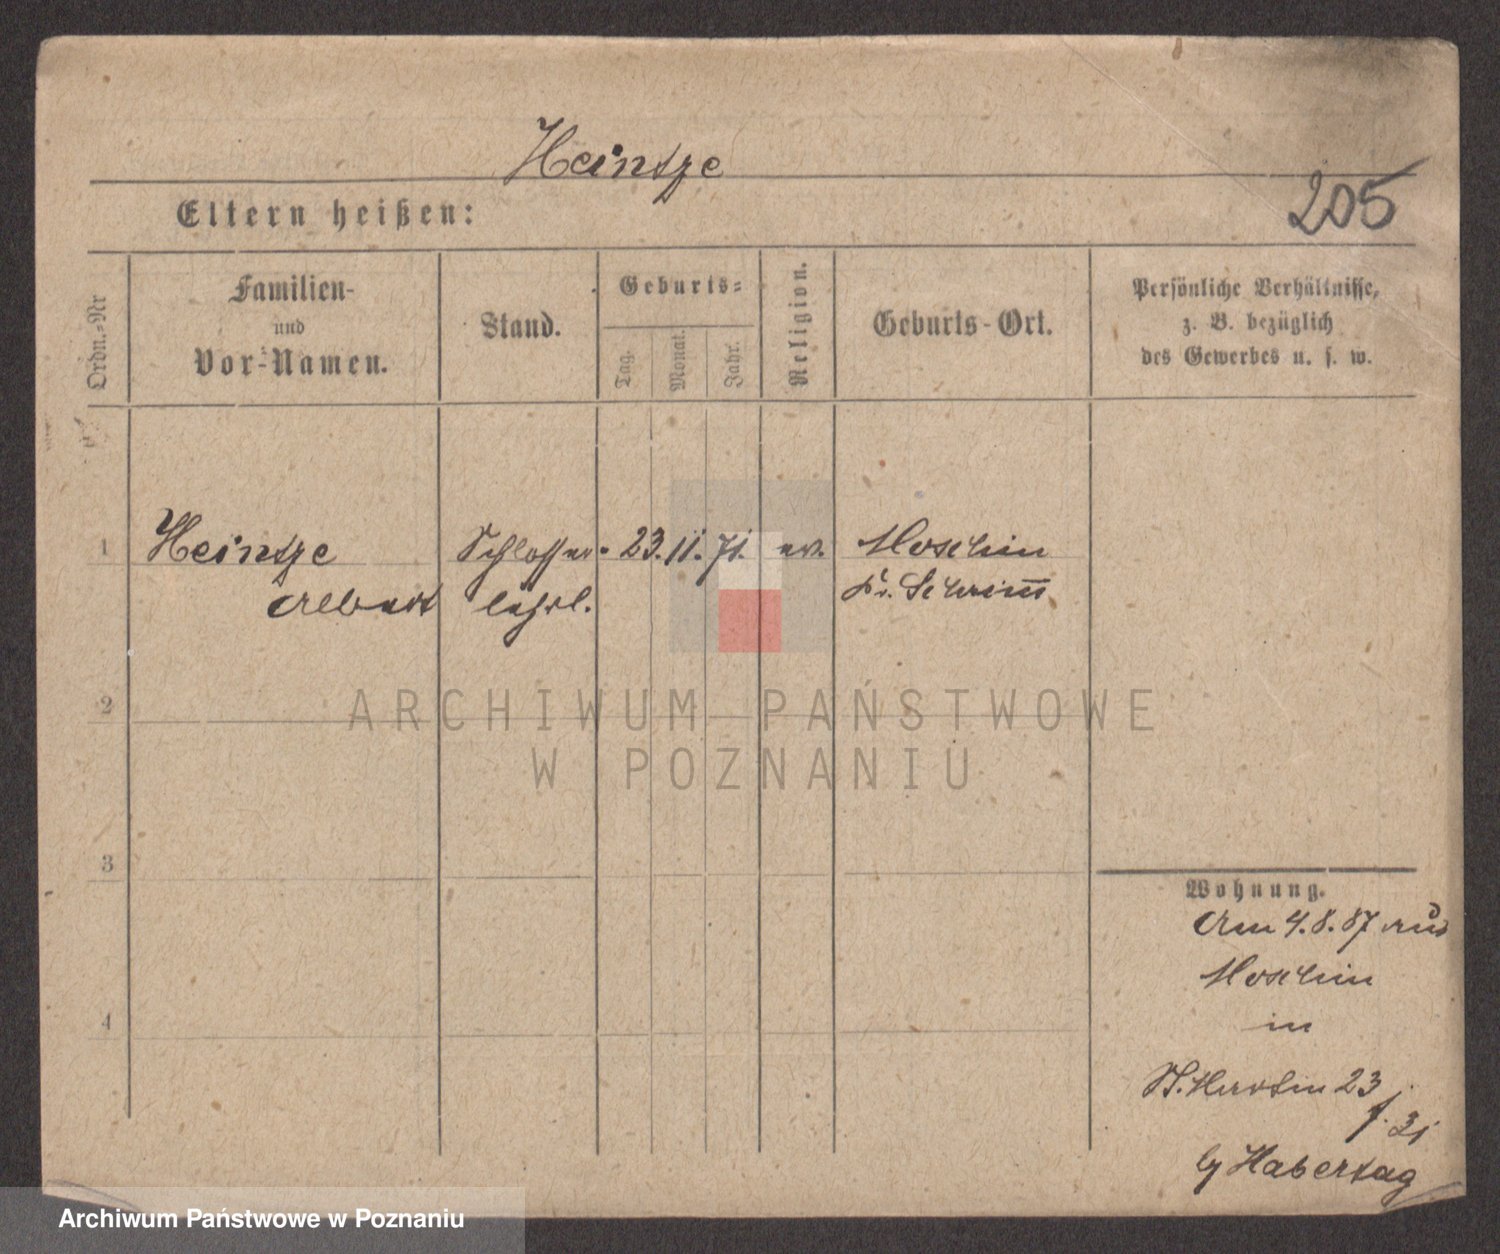 Heintze
205
Eltern heißen:
Ordn.=Nr
Familien-
und
Vor-Namen.
Stand.
Geburts=
Tag.
Monat.
Jahr.
Religion.
Geburts-Ort.
Persönliche Verhältnisse,
z. B. bezüglich
des Gewerbes u. s. w.
1
Heintze
Albert
Schlosser-
lehrl.
23. 11. 71.
ev.
Moschin
Kr. Schrim̅
2
3
4
Wohnung.
Am 4.8.87 aus
Moschin
in
St. Martin 23
by Habertag
ARCHIWUM PAŃSTWOWE
W POZNANIU
Archiwum Państwowe w Poznaniu